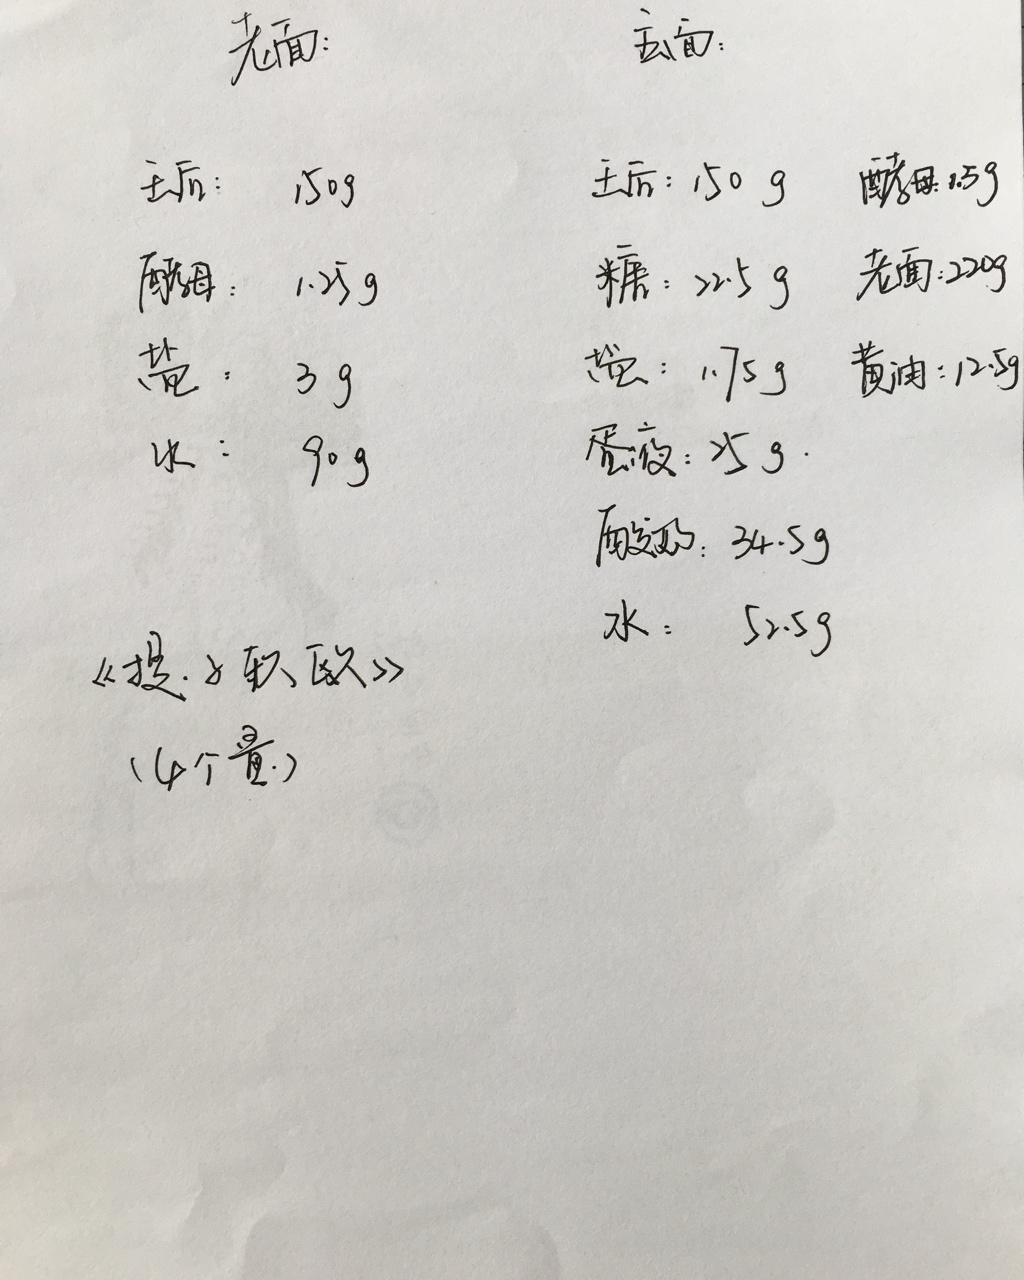 老面:
王后: 150g
酵母: 1.25g
盐: 3g
水: 90g
《提子软欧》
(4个量)
主面:
王后: 150g
糖: 22.5g
盐: 1.75g
蛋液: 25g.
酸奶: 34.5g
水: 52.5g
酵母: 1.5g
老面: 220g
黄油: 12.5g